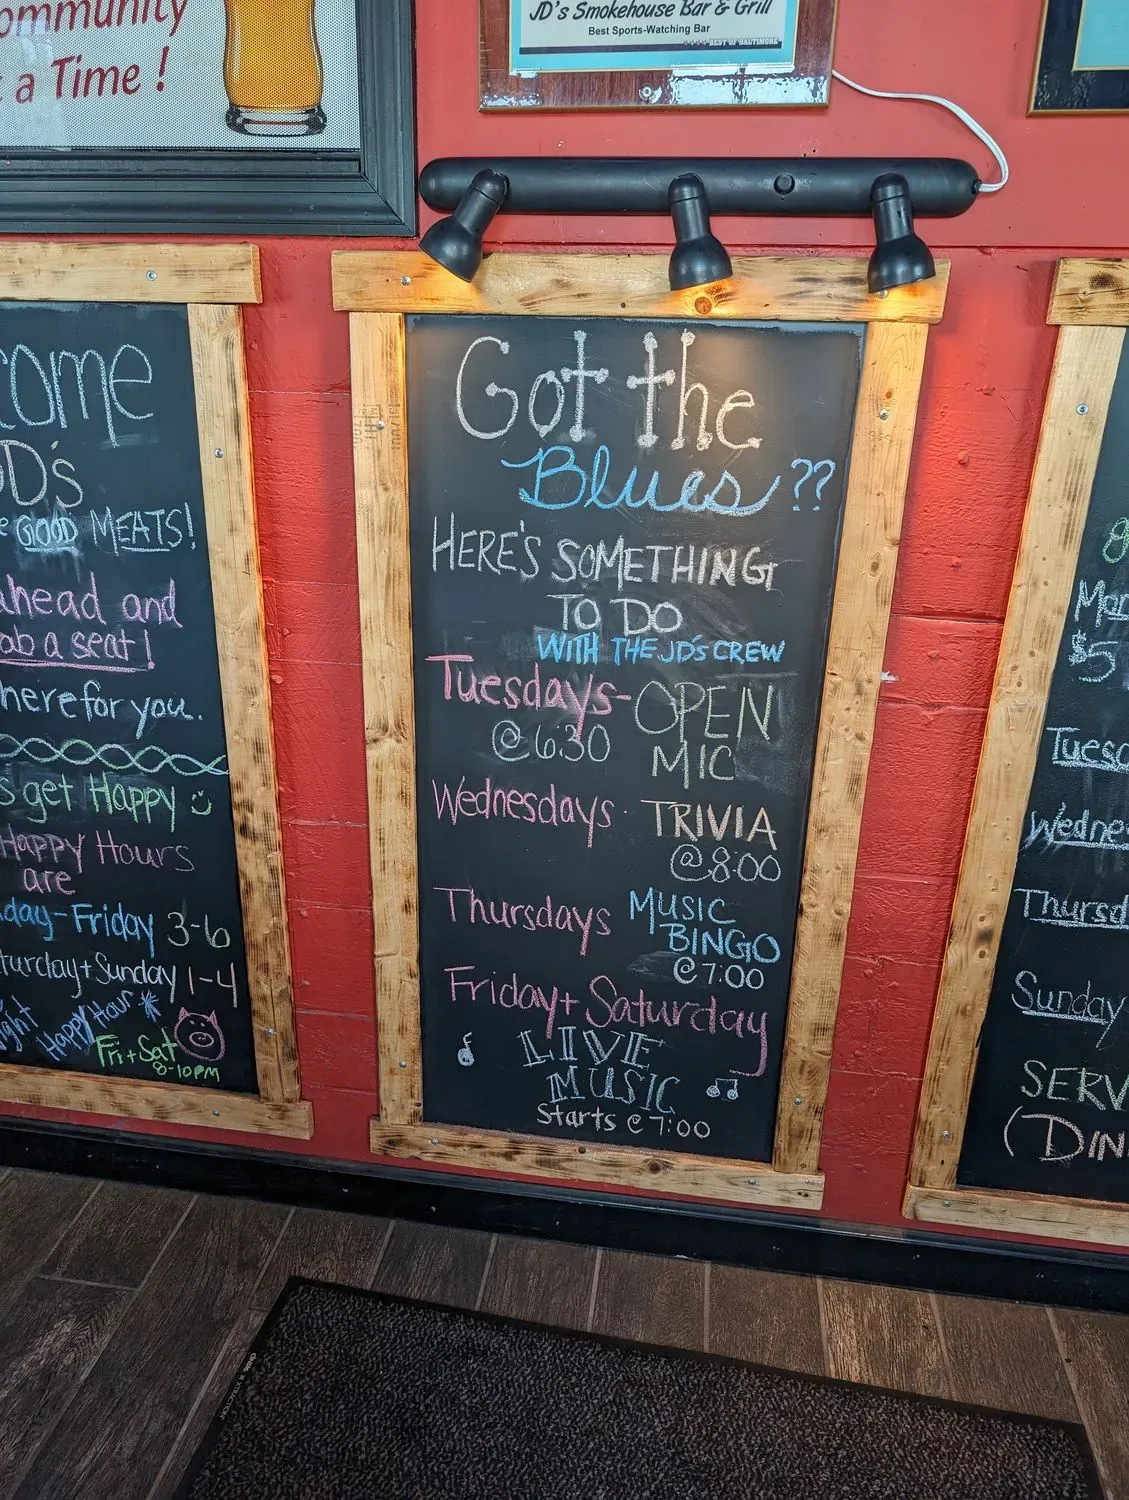 ommunity
a Time !
JD's Smokehouse Bar & Grill
Best Sports-Watching Bar
BEST OF BALTIMORE
come
D's
GOOD MEATS!
ahead and
ab a seat!
here for you.
s get Happy
Happy Hours
are
day-Friday 3-6
turday+Sunday 1-4
ight
Happy Hour
Fri+Sat
8-10PM
Got the
Blues??
HERE'S SOMETHING
TO DO
WITH THE JD'S CREW
Tuesdays- OPEN
@ 6:30 MIC
Wednesdays · TRIVIA
@8:00
Thursdays MUSIC
BINGO
@ 7:00
Friday+ Saturday
LIVE
MUSIC
Starts @ 7:00
Mon
$5
Tuesd
Wednes
Thursd
Sunday
SERV
(DIN